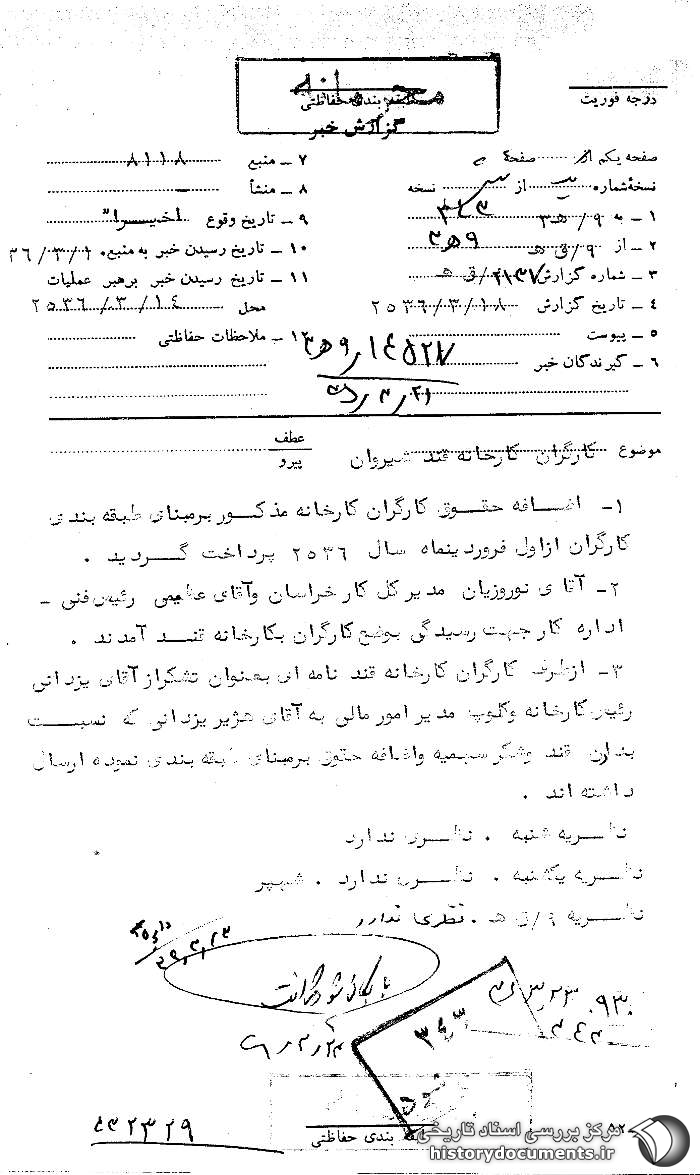 درجه فوریت
محرمانه
طبقه بندی حفاظتی
گزارش خبر
صفحه یکم از صفحه
نسخه شماره از نسخه
۱ـ به ۹/هـ۳
۲ـ از ۹/ق هـ
۳ـ شماره گزارش ۲۱۳۷/ق هـ
۴ـ تاریخ گزارش ۲۵۳۶/۳/۱۸
۵ـ پیوست
۶ـ گیرندگان خبر
۷ـ منبع ۸۱۱۸
۸ـ منشأ
۹ـ تاریخ وقوع اخیـــرا"
۱۰ـ تاریخ رسیدن خبر به منبع ۳۶/۳/۱۰
۱۱ـ تاریخ رسیدن خبر برهبر عملیات
محل ۲۵۳۶/۳/۱۴
۱۲ـ ملاحظات حفاظتی
عطف
پیرو
موضوع کارگران کارخانه قند شیروان
۱ـ اضـافه حقـوق کارگران کارخانه مذکـور برمبنای طبقه بندی
کارگران ازاول فروردینماه سال ۲۵۳۶ پرداخت گـردید .
۲ـ آقای نوروزیان مدیرکل کار خراسان وآقای عظیمی رئیس فنی ـ
اداره کار جهت رسیدگی بوضع کارگران بکارخانه قنـد آمدند .
۳ـ ازطرف کارگران کارخانه قند نامه ای بعنوان تشکراز آقای یزدانی
رئیس کارخانه وکلوپ مدیر امور مالی به آقای هژبر یزدانی که نسبـت
بدادن قند وشکر سهمیه واضافه حقوق برمبنای طبقه بندی نموده ارسال
داشته اند .
نظـریه شنبه . نظـری ندارد
نظـریه یکشنبه . نظـری ندارد . شهپر
نظـریه ۹/ق هـ . نظری ندارد
۳۴۳
طبقه بندی حفاظتی
مرکز بررسی اسناد تاریخی
historydocuments.ir